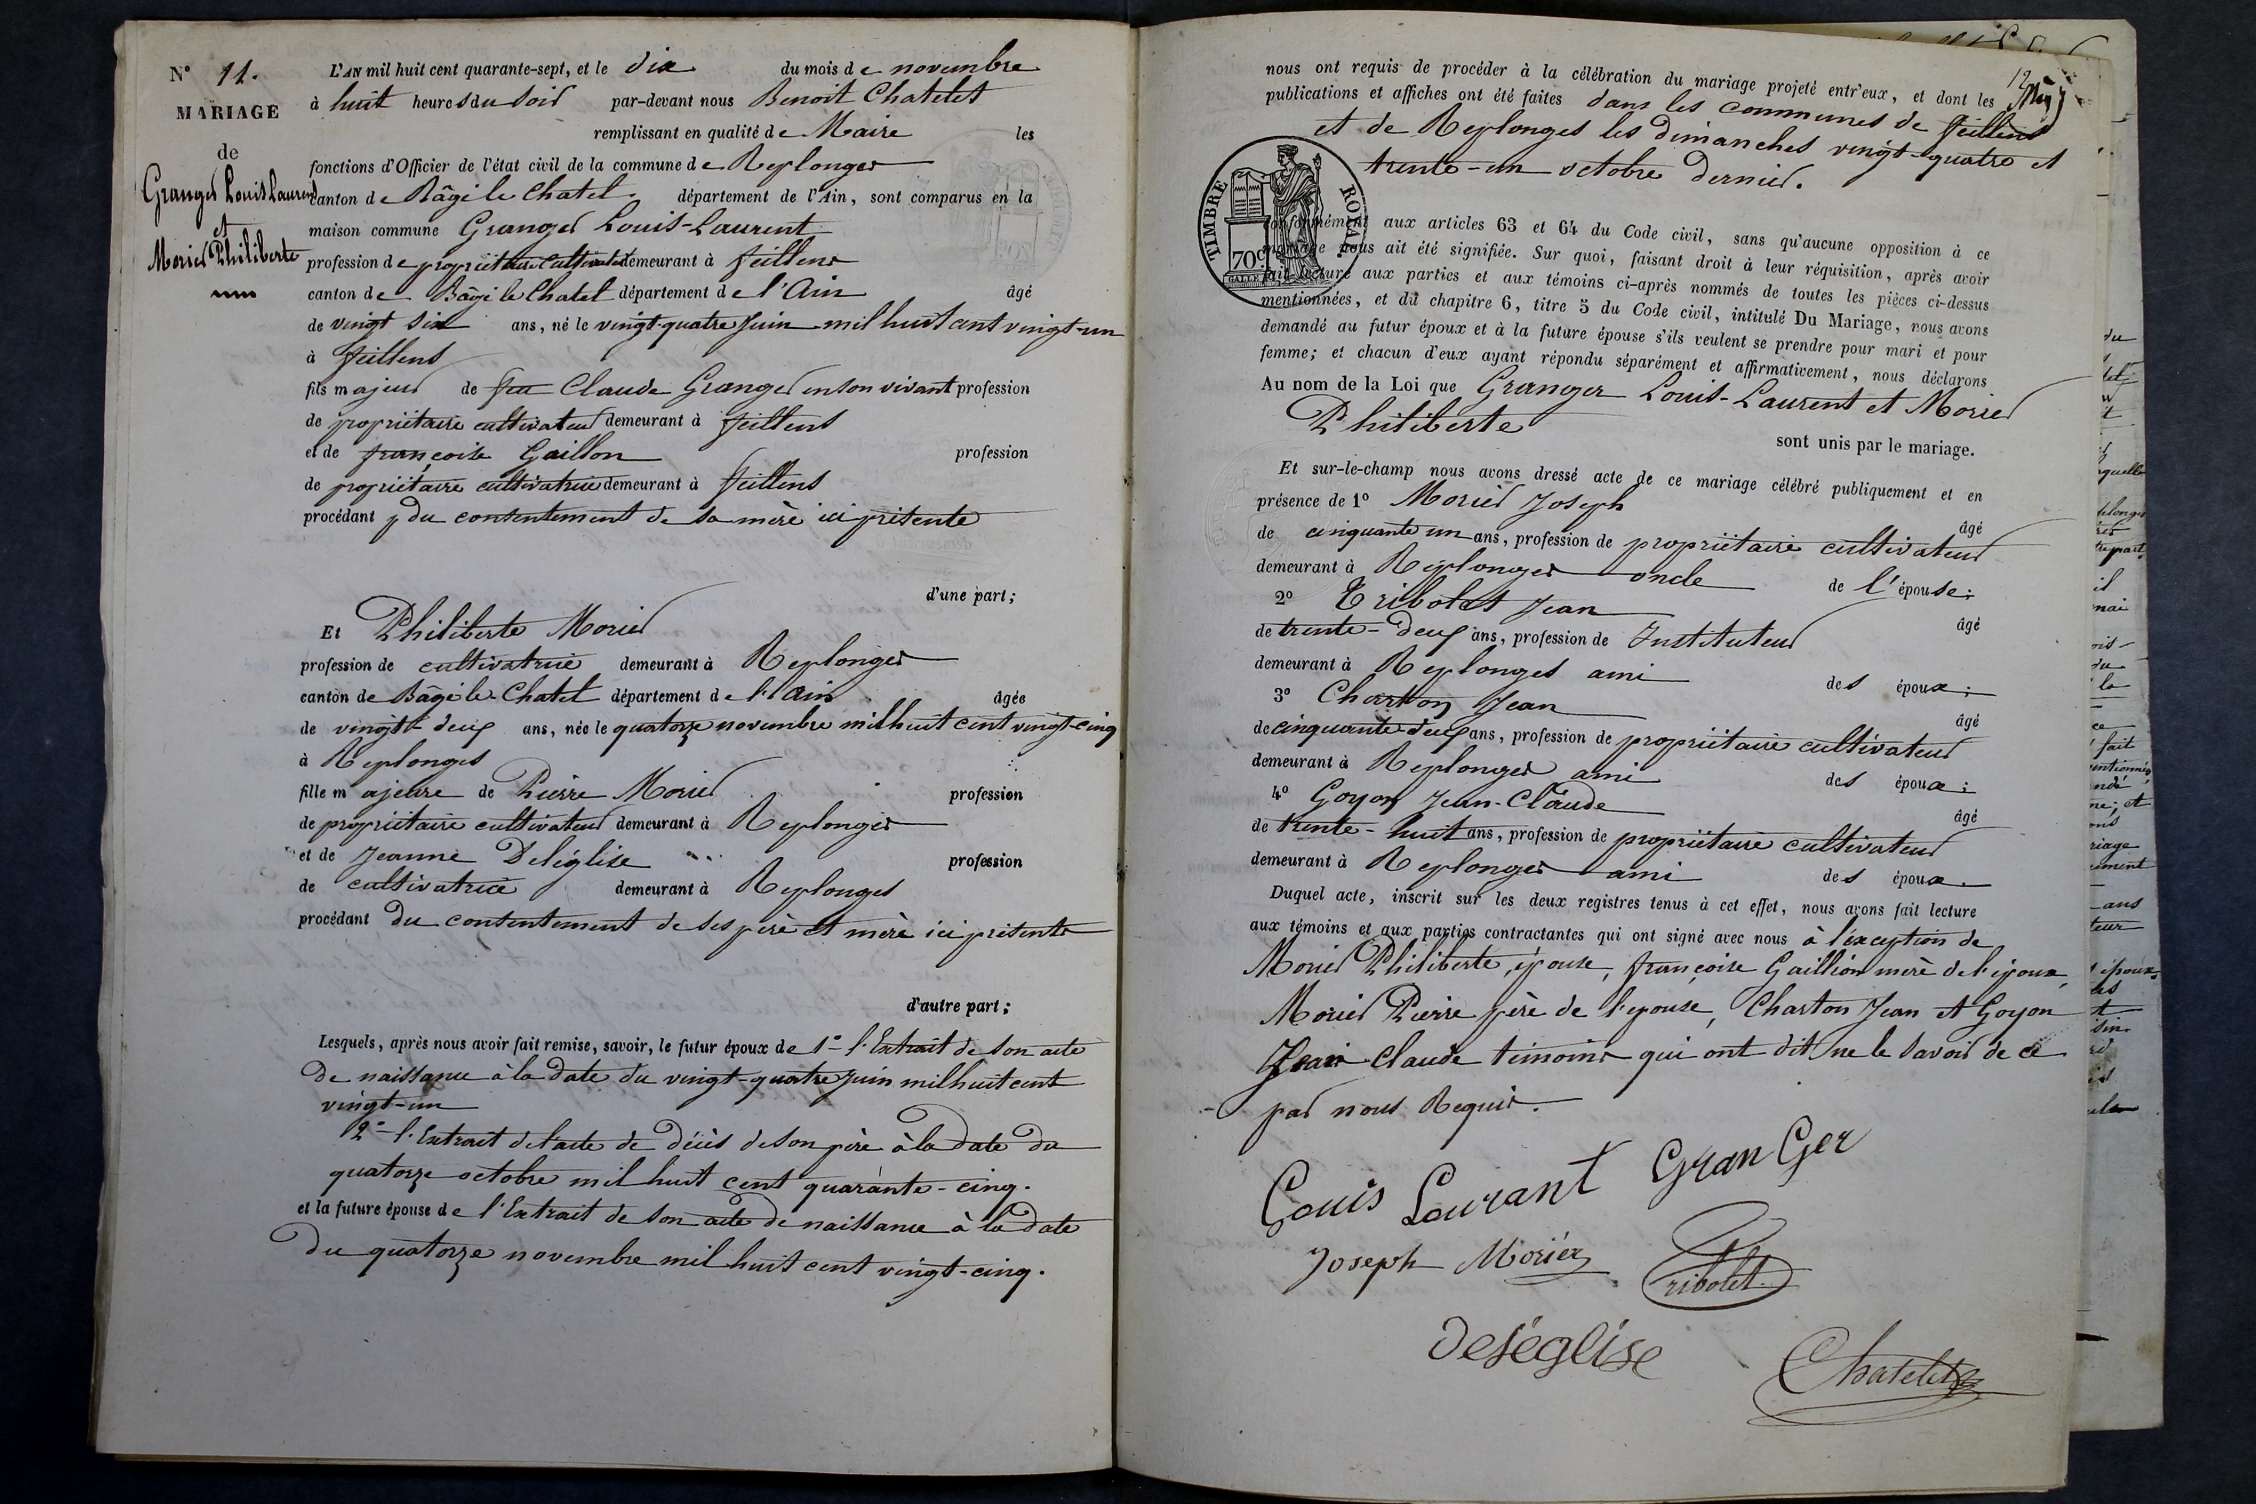 N° 11.
MARIAGE
de
Granger Louis Laurent
et
Morier Philiberte
L'AN mil huit cent quarante-sept, et le dix du mois de novembre
à huit heures du soir par-devant nous Benoit Chatelet
remplissant en qualité de Maire les
fonctions d'Officier de l'état civil de la commune de Replonges
canton de Bâgé le Chatel département de l'Ain, sont comparus en la
maison commune Granger Louis-Laurent
profession de propriétaire cultivateur demeurant à feillens
canton de Bâgé le Chatel département de l'Ain âgé
de vingt six ans, né le vingt-quatre Juin mil huit cent vingt-un
à feillens
fils majeur de feu Claude Granger en son vivant profession
de propriétaire cultivateur demeurant à feillens
et de françoise Gaillon profession
de propriétaire cultivatrice demeurant à feillens
procédant du consentement de sa mère ici présente
d'une part;
Et Philiberte Morier
profession de cultivatrice demeurant à Replonges
canton de Bâgé le Chatel département de l'Ain âgée
de vingt-deux ans, née le quatorze novembre mil huit cent vingt-cinq
à Replonges
fille majeure de Pierre Morier profession
de propriétaire cultivateur demeurant à Replonges
et de Jeanne Deléglise profession
de cultivatrice demeurant à Replonges
procédant du consentement de ses père et mère ici présents
d'autre part;
Lesquels, après nous avoir fait remise, savoir, le futur époux de 1° l'Extrait de son acte
de naissance à la date du vingt-quatre Juin mil huit cent
vingt-un
2° l'Extrait de l'acte de décès de son père à la date du
quatorze octobre mil huit cent quarante-cinq.
et la future épouse de l'Extrait de son acte de naissance à la date
du quatorze novembre mil huit cent vingt-cinq.
12
nous ont requis de procéder à la célébration du mariage projeté entr'eux, et dont les
publications et affiches ont été faites dans les communes de feillens
et de Replonges les dimanches vingt-quatre et
trente-un octobre dernier.
TIMBRE ROYAL
70c
conformément aux articles 63 et 64 du Code civil, sans qu'aucune opposition à ce
mariage nous ait été signifiée. Sur quoi, faisant droit à leur réquisition, après avoir
fait lecture aux parties et aux témoins ci-après nommés de toutes les pièces ci-dessus
mentionnées, et du chapitre 6, titre 5 du Code civil, intitulé Du Mariage, nous avons
demandé au futur époux et à la future épouse s'ils veulent se prendre pour mari et pour
femme; et chacun d'eux ayant répondu séparément et affirmativement, nous déclarons
Au nom de la Loi que Granger Louis-Laurent et Morier
Philiberte
sont unis par le mariage.
Et sur-le-champ nous avons dressé acte de ce mariage célébré publiquement et en
présence de 1° Morier Joseph
âgé
de cinquante un ans, profession de propriétaire cultivateur
demeurant à Replonges oncle de l'épouse;
2° Tribolet Jean
âgé
de trente-deux ans, profession de Instituteur
demeurant à Replonges ami des époux;
3° Charton Jean
âgé
de cinquante-deux ans, profession de propriétaire cultivateur
demeurant à Replonges ami des époux;
4° Goyon Jean-Claude
âgé
de trente-huit ans, profession de propriétaire cultivateur
demeurant à Replonges ami des époux.
Duquel acte, inscrit sur les deux registres tenus à cet effet, nous avons fait lecture
aux témoins et aux parties contractantes qui ont signé avec nous à l'exception de
Morier Philiberte, épouse, françoise Gaillion mère de l'époux,
Morier Pierre père de l'épouse, Charton Jean et Goyon
Jean-Claude témoins qui ont dit ne le savoir de ce
par nous Requis.
Louis Lourant Gran Ger
Joseph Moriér
Tribolet
deléglise
Chatelet